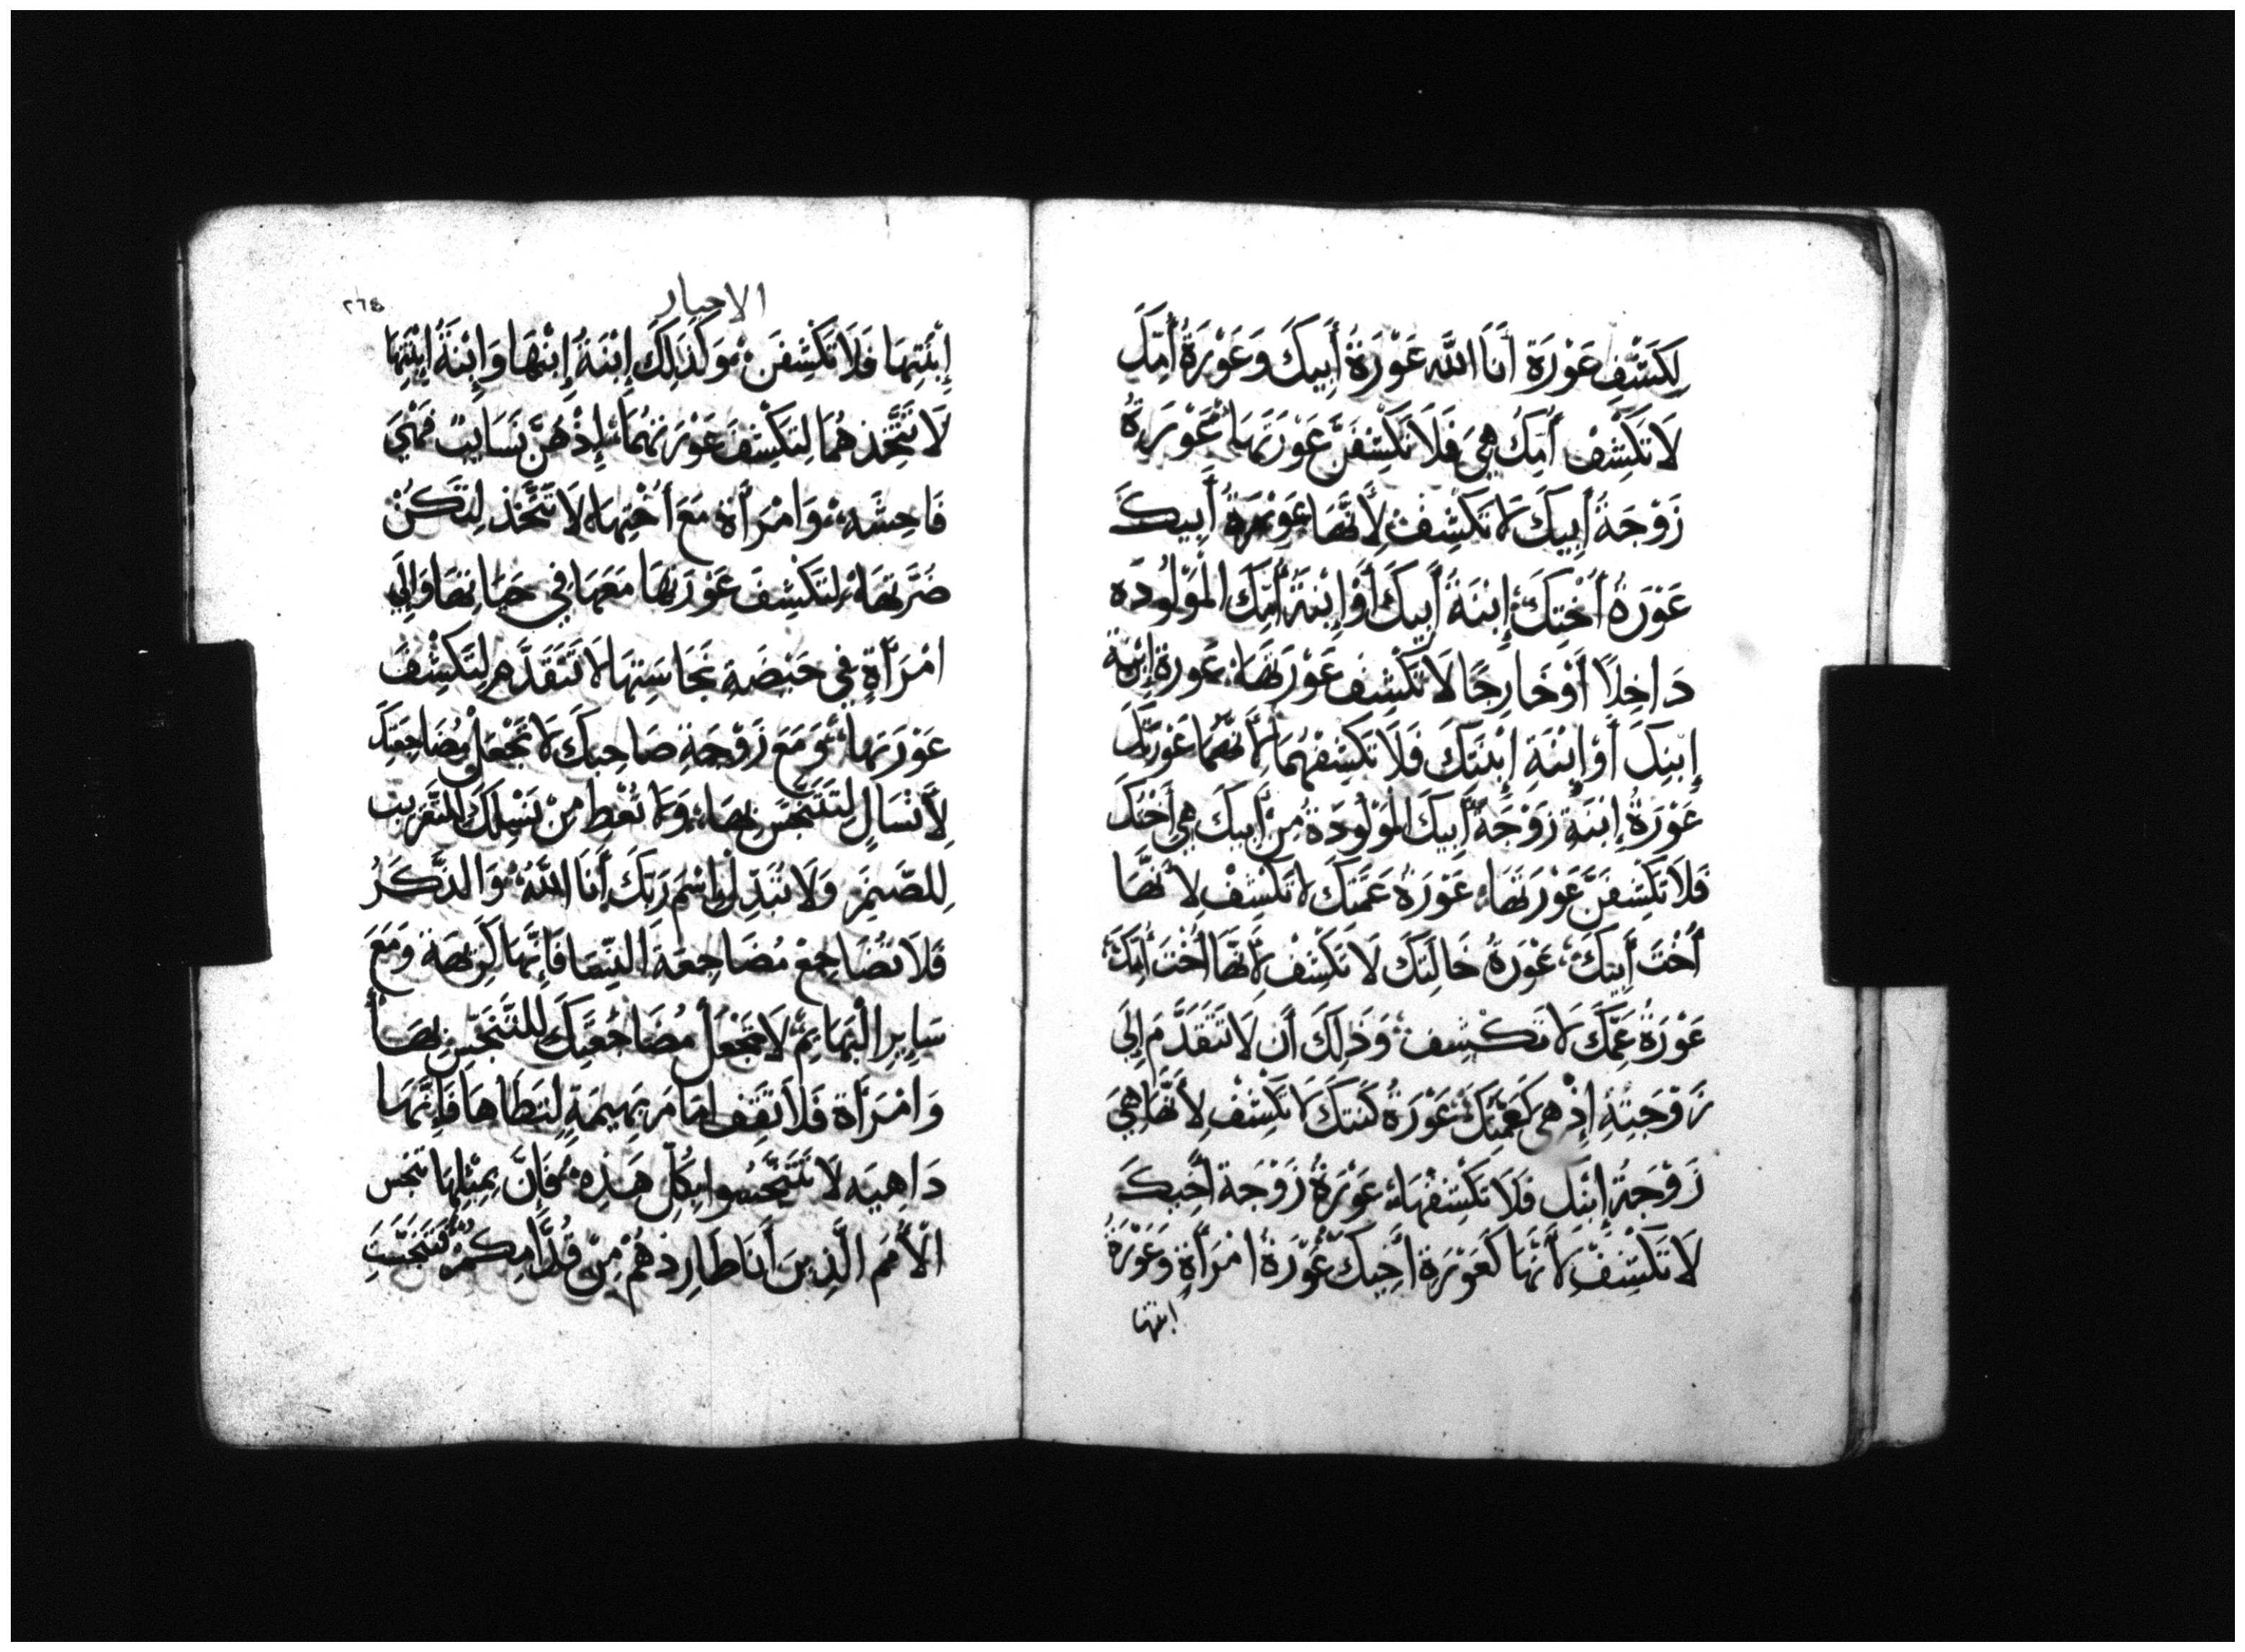 لِكَشْفِ عَوْرَة أَنَا اللّه عَوْرَةُ أَبِيكَ وَعَوْرَةُ أُمِّكَ
لَا تَكْشِفْ أُمُّكَ هِيَ فَلَا تَكْشِفَنَّ عَوْرَتَهَا عَوْرَةُ
زَوْجَةُ أَبِيكَ لَا تَكْشِفْ لِأَنَّهَا عَوْرَةُ أَبِيكَ
عَوْرَةُ أُخْتِكَ إِبْنَةُ أَبِيكَ أَوْ إِبْنَةُ أُمِّكَ الْمَوْلُودَه
دَاخِلًا أَوْ خَارِجًا لَا تَكْشِفْ عَوْرَتَهَا عَورة ابْنَة
إِبْنِكَ أَوْ إِبْنَةِ إِبْنَتِكَ فَلَا تَكْشِفْهُمَا لِأَنَّهُمَا عَوْرَتُكَ
عَوْرَةُ إِبْنَةِ زَوْجَةِ أَبِيكَ الْمَوْلُودَةُ مِنْ أَبِيكَ هِيَ أُخْتُكَ
فَلَا تَكْشِفَنَّ عَوْرَتَهَا عَوْرَةُ عَمَّتِكَ لَا تَكْشِفْ لِأَنَّهَا
أُخْتُ أَبِيكَ عَوْرَةُ خَالَتِكَ لَا تَكْشِفْ لِأَنَّهَا أُخْتُ أُمِّكَ
عَوْرَةُ عَمِّكَ لَا تَكْشِف وَذَلِكَ أَن لَا تَتَقَدَّمَ إِلَى
زَوْجَتِهِ إِذْ هِيَ كَعَمَّتِكَ عَوْرَةُ كَنَّتِكَ لَا تَكْشِفْ لِأَنَّهَا هِيَ
زَوْجَةُ إِبْنِكَ فَلَا تَكْشِفْهَا عَوْرَةُ زَوْجَة أَخِيكَ
لَا تَكْشِفْ لِأَنَّهَا كَعَوْرَةِ أَخِيكَ عَوْرَةُ امْرَأَةٍ وَعَوْرَةُ
ابنتها
الاحبار
إِبْنَتِهَا فَلَا تَكْشِفَن وَكَذَلِكَ إِبْنَةُ إِبْنِهَا وَإِبْنَةُ إِبْنَتِهَا
لَا تَتَّخِذهُمَا لِتَكْشِفَ عَوْرَتَهُمَا إِذْ هُنَّ نَسَايِبُ فَهْيَ
فَاحِشَه وَامْرَأَة مَعَ أُخْتِهَا لَا تَتَّخِذ لِتَكُنْ
ضُرَّتهَا لِتَكْشِفَ عَوْرَتهَا مَعَهَا فِي حَيَاتِهَا وَإِلَى
امْرَأَةٍ فِي حَيْضَةِ نَجَاسَتِهَا لَا تَتَقَدَّم لِتَكْشِفَ
عَوْرَتَهَا وَمَعَ زَوْجَةِ صَاحِبِكَ لَا تَجْعَلْ مُضَاجِعَتَكَ
لِأَنْسَالٍ لِتَتَنَجَّسَ بِهَا وَلَا تُعْطِ مِنْ نَسْلِكَ لِلتَّقْرِيبِ
لِلصَّنَمِ وَلَا تُبَدِّلْ بِاسْم رَبِّكَ أَنَا اللَّهُ وَالذَّكَرُ
فَلَا تُضَاجِعْ مُضَاجِعَةَ النِّسَا فَإِنَّهَا كَرِيْهَة وَمَعَ
سَايِرِ الْبَهَائِمِ لَا تَجْعَلْ مُضَاجَعَتَكَ لِلتَّنَجُّسِ بِهَا
وَامْرَأَة فَلَا تَقِف امَامَ بَهِيمَةٍ لِتَطَاهَا فَإِنَّهَا
دَاهِيَه لَا تَتَنَجَّسُوا بِكُلِّ هَذِهِ فَإِنَّ بِمِثْلِهَا تَنَجَّس
الْأُمَم الَّذِينَ أَنَا طَارِدهُمْ مِنْ قُدَّامِكُمْ فَتَنَجَّسَتِ